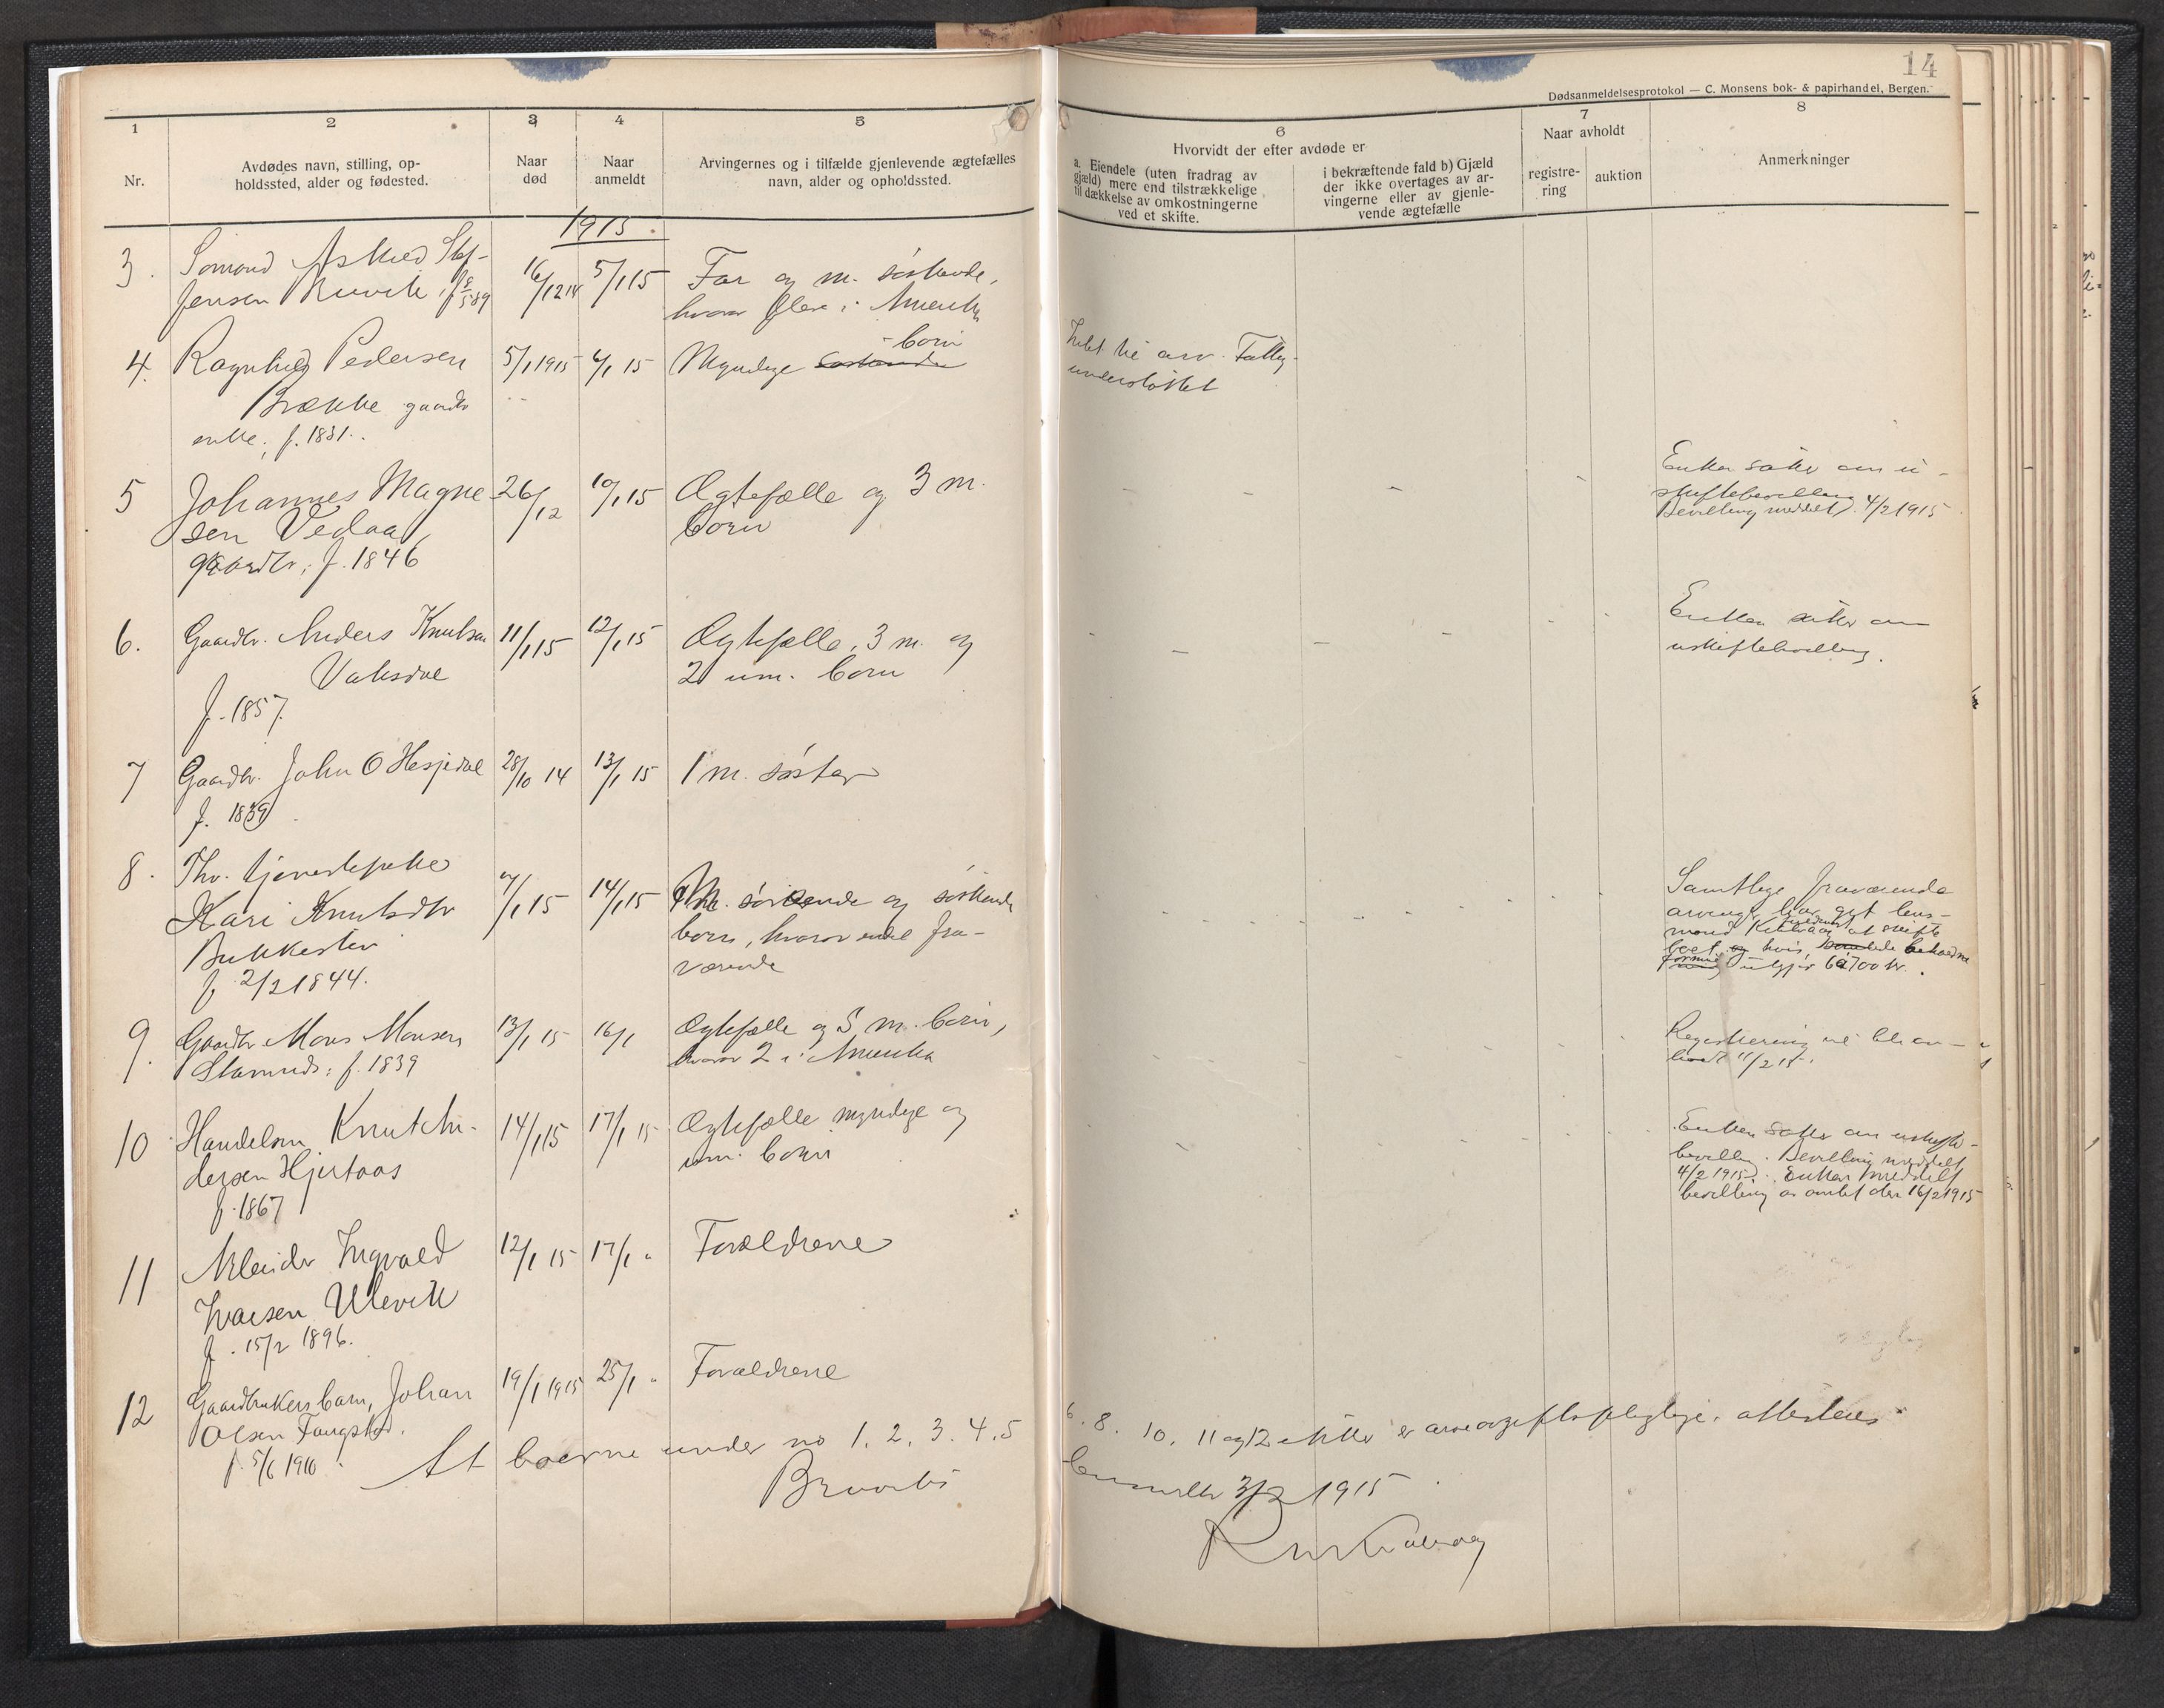 14
Dødsanmeldelsesprotokol — C. Monsens bok- & papirhandel, Bergen.
1 2 3 4 5 6 7 8
Nr.
Avdødes navn, stilling, op-
holdssted, alder og fødested.
Naar
død
Naar
anmeldt
Arvingernes og i tilfælde gjenlevende ægtefælles
navn, alder og opholdssted.
Hvorvidt der efter avdøde er
a. Eiendele (uten fradrag av
gjæld) mere end tilstrækkelige
til dækkelse av omkostningerne
ved et skifte.
i bekræftende fald b) Gjæld
der ikke overtages av ar-
vingerne eller av gjenle-
vende ægtefælle
Naar avholdt
registre-
ring
auktion
Anmerkninger
1915.
3. Sømand
16/12 14 5/1 15 Far og m. søskende,
hvorav flere i Amerika
4. Ragnhild Pedersen 5/1 1915 6/1 15 Myndige søskende børn
Brække gaardbr
enke, f. 1831.
Intet til arv. Fattig-
understøttet
5 Johannes Magne- 26/12 10/1 15 Ægtefælle og 3 m.
sen Vedaa, børn
gaardbr, f. 1846
Enken søker om u-
skiftebevilling
Bevilling meddelt 4/2 1915
6. Gaardbr. Anders Knutsen 11/1 15 12/1 15 Ægtefælle, 3 m. og
Vaksdal 2 um. børn
f. 1857.
Enken søker om
uskiftebevilling.
7 Gaardbr. John O Hesjedal 28/10 14 13/1 15 1 m. søster
f. 1839
8. Fhv. tjenestepike
Kari Knutsdtr /1 15 14/1 15 m. søskende og søskende
Bukkesten børn, hvorav endel fra-
f. 2/2 1844. værende
Samtlige fraværende
arvinger har git lens-
mand at skifte
boet, hvis behold
utgjør 700 kr.
9. Gaardbr Mons Monsen 13/1 15 16/1 Ægtefælle og 5 m. børn,
f. 1839 hvorav 2 i Amerika
Registrering vil bli av-
holdt 11/2 15.
10 Handelsm. Knut 14/1 15 17/1 15 Ægtefælle myndige og
dersen Hjertaas um. børn
f. 1867
Enken søker om uskifte-
bevilling. Bevilling meddelt
4/2 1915. Enken meddelt
bevilling av amtet den 16/2 1915
11 Arbeider Ingvald 12/1 15 17/1 " Forældrene
Ivarsen Ulevik
f. 15/2 1896.
12 Gaardbrukers barn, Johan 19/1 1915 25/1 " Forældrene
Olsen Fangstad.
f. 5/6 1910.
At boerne under no 1. 2. 3. 4. 5
6. 8. 10. 11 og 12 ikke er arveavgiftspligtige, attesteres
Bruvik
3/2 1915